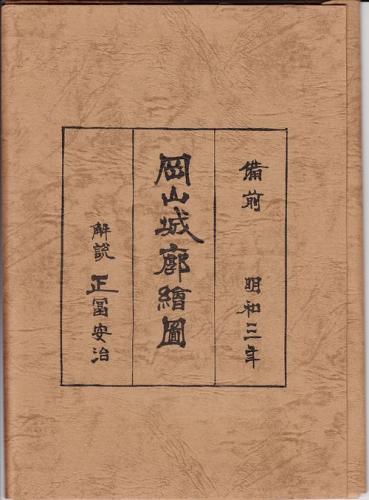 備前 明和三年
岡山城廓繪圖
解説 正冨安治